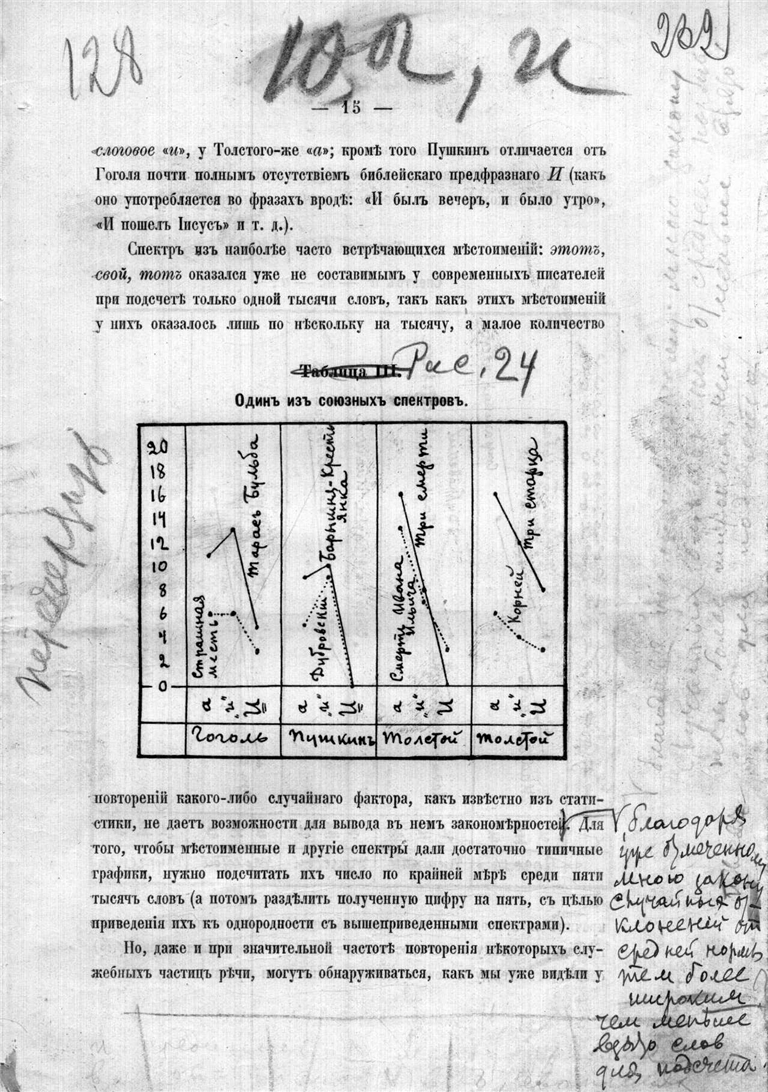 128
10, а, и
202
— 15 —
слоговое «и», у Толстого-же «а»; кромѣ того Пушкинъ отличается отъ
Гоголя почти полнымъ отсутствіемъ библейскаго предфразнаго И (какъ
оно употребляется во фразахъ вродѣ: «И былъ вечеръ, и было утро»,
«И пошелъ Іисусъ» и т. д.).
Спектръ изъ наиболѣе часто встрѣчающихся мѣстоименій: этотъ,
свой, тотъ оказался уже не составимымъ у современныхъ писателей
при подсчетѣ только одной тысячи словъ, такъ какъ этихъ мѣстоименій
у нихъ оказалось лишь по нѣскольку на тысячу, а малое количество
Таблица III. Рис. 24
Одинъ изъ союзныхъ спектровъ.
перечерчизъ
20
18
16
14
12
10
8
6
4
2
0
Страшная месть
Тарасъ Бульба
Дубровскій
Барышня-Крестьянка
Смерть Ивана Ильича
Три смерти
Корней
Три старца
а „и" И
а „и" И
а „и" И
а „и" И
Гоголь Пушкинъ Толстой Толстой
повтореній какого-либо случайнаго фактора, какъ извѣстно изъ стати-
стики, не даетъ возможности для вывода въ немъ закономѣрностей. Для
того, чтобы мѣстоименные и другіе спектры дали достаточно типичные
графики, нужно подсчитать ихъ число по крайней мѣрѣ среди пяти
тысячъ словъ (а потомъ раздѣлить полученную цифру на пять, съ цѣлью
приведенія ихъ къ однородности съ вышеприведенными спектрами).
Но, даже и при значительной частотѣ повторенія нѣкоторыхъ слу-
жебныхъ частицъ рѣчи, могутъ обнаруживаться, какъ мы уже видѣли у
V благодаря
уже отмеченному
мною закону
случайных от-
клонений от
средней нормы
тем более
широким,
чем меньше
взято слов
для подсчета.